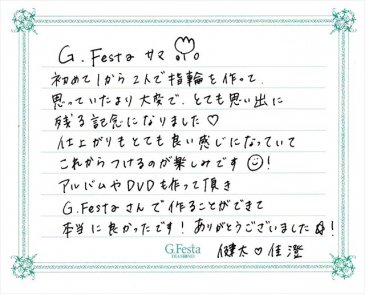 G.Festa サマ
初めて1から2人で指輪を作って、
思っていたより大変で、とても思い出に
残る記念になりました♡
仕上がりもとても良い感じになっていて
これからつけるのが楽しみです☺!
アルバムやDVDも作って頂き
G.Festaさんで作ることができて
本当に良かったです!ありがとうございました☆!
G.Festa
健太♡佳澄